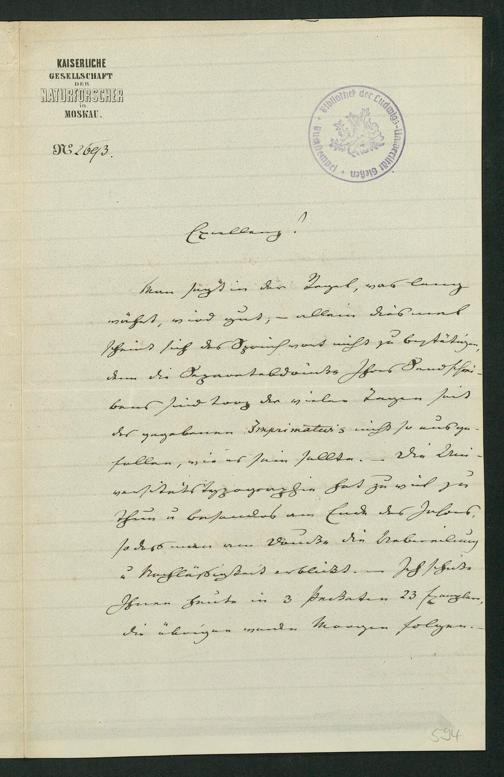 KAISERLICHE
GESELLSCHAFT
DER
NATURFORSCHER
in
MOSKAU.
№ 2693.
Bibliothek der Ludwigs-Universität Gießen
Excellenz!
Man sagt in der Regel, was lang
währt, wird gut, – allein diesmal
scheint sich das Sprichwort nicht zu bestätigen,
denn die Separatabdrücke Ihres Sendschrei-
bens sind trotz der vielen Tagen seit
des gegebenen Imprimatur's nicht so ausge-
fallen, wie es sein sollte. – Die Uni-
versitätstypographie hat zu viel zu
thun u besonders am Ende des Jahres,
so dass man am Drucke die Uebereilung
u Nachlässigkeit erblickt. – Ich schicke
Ihnen heute in 3 Packeten 23 Exemplare,
die übrigen werden Morgen folgen. –
594